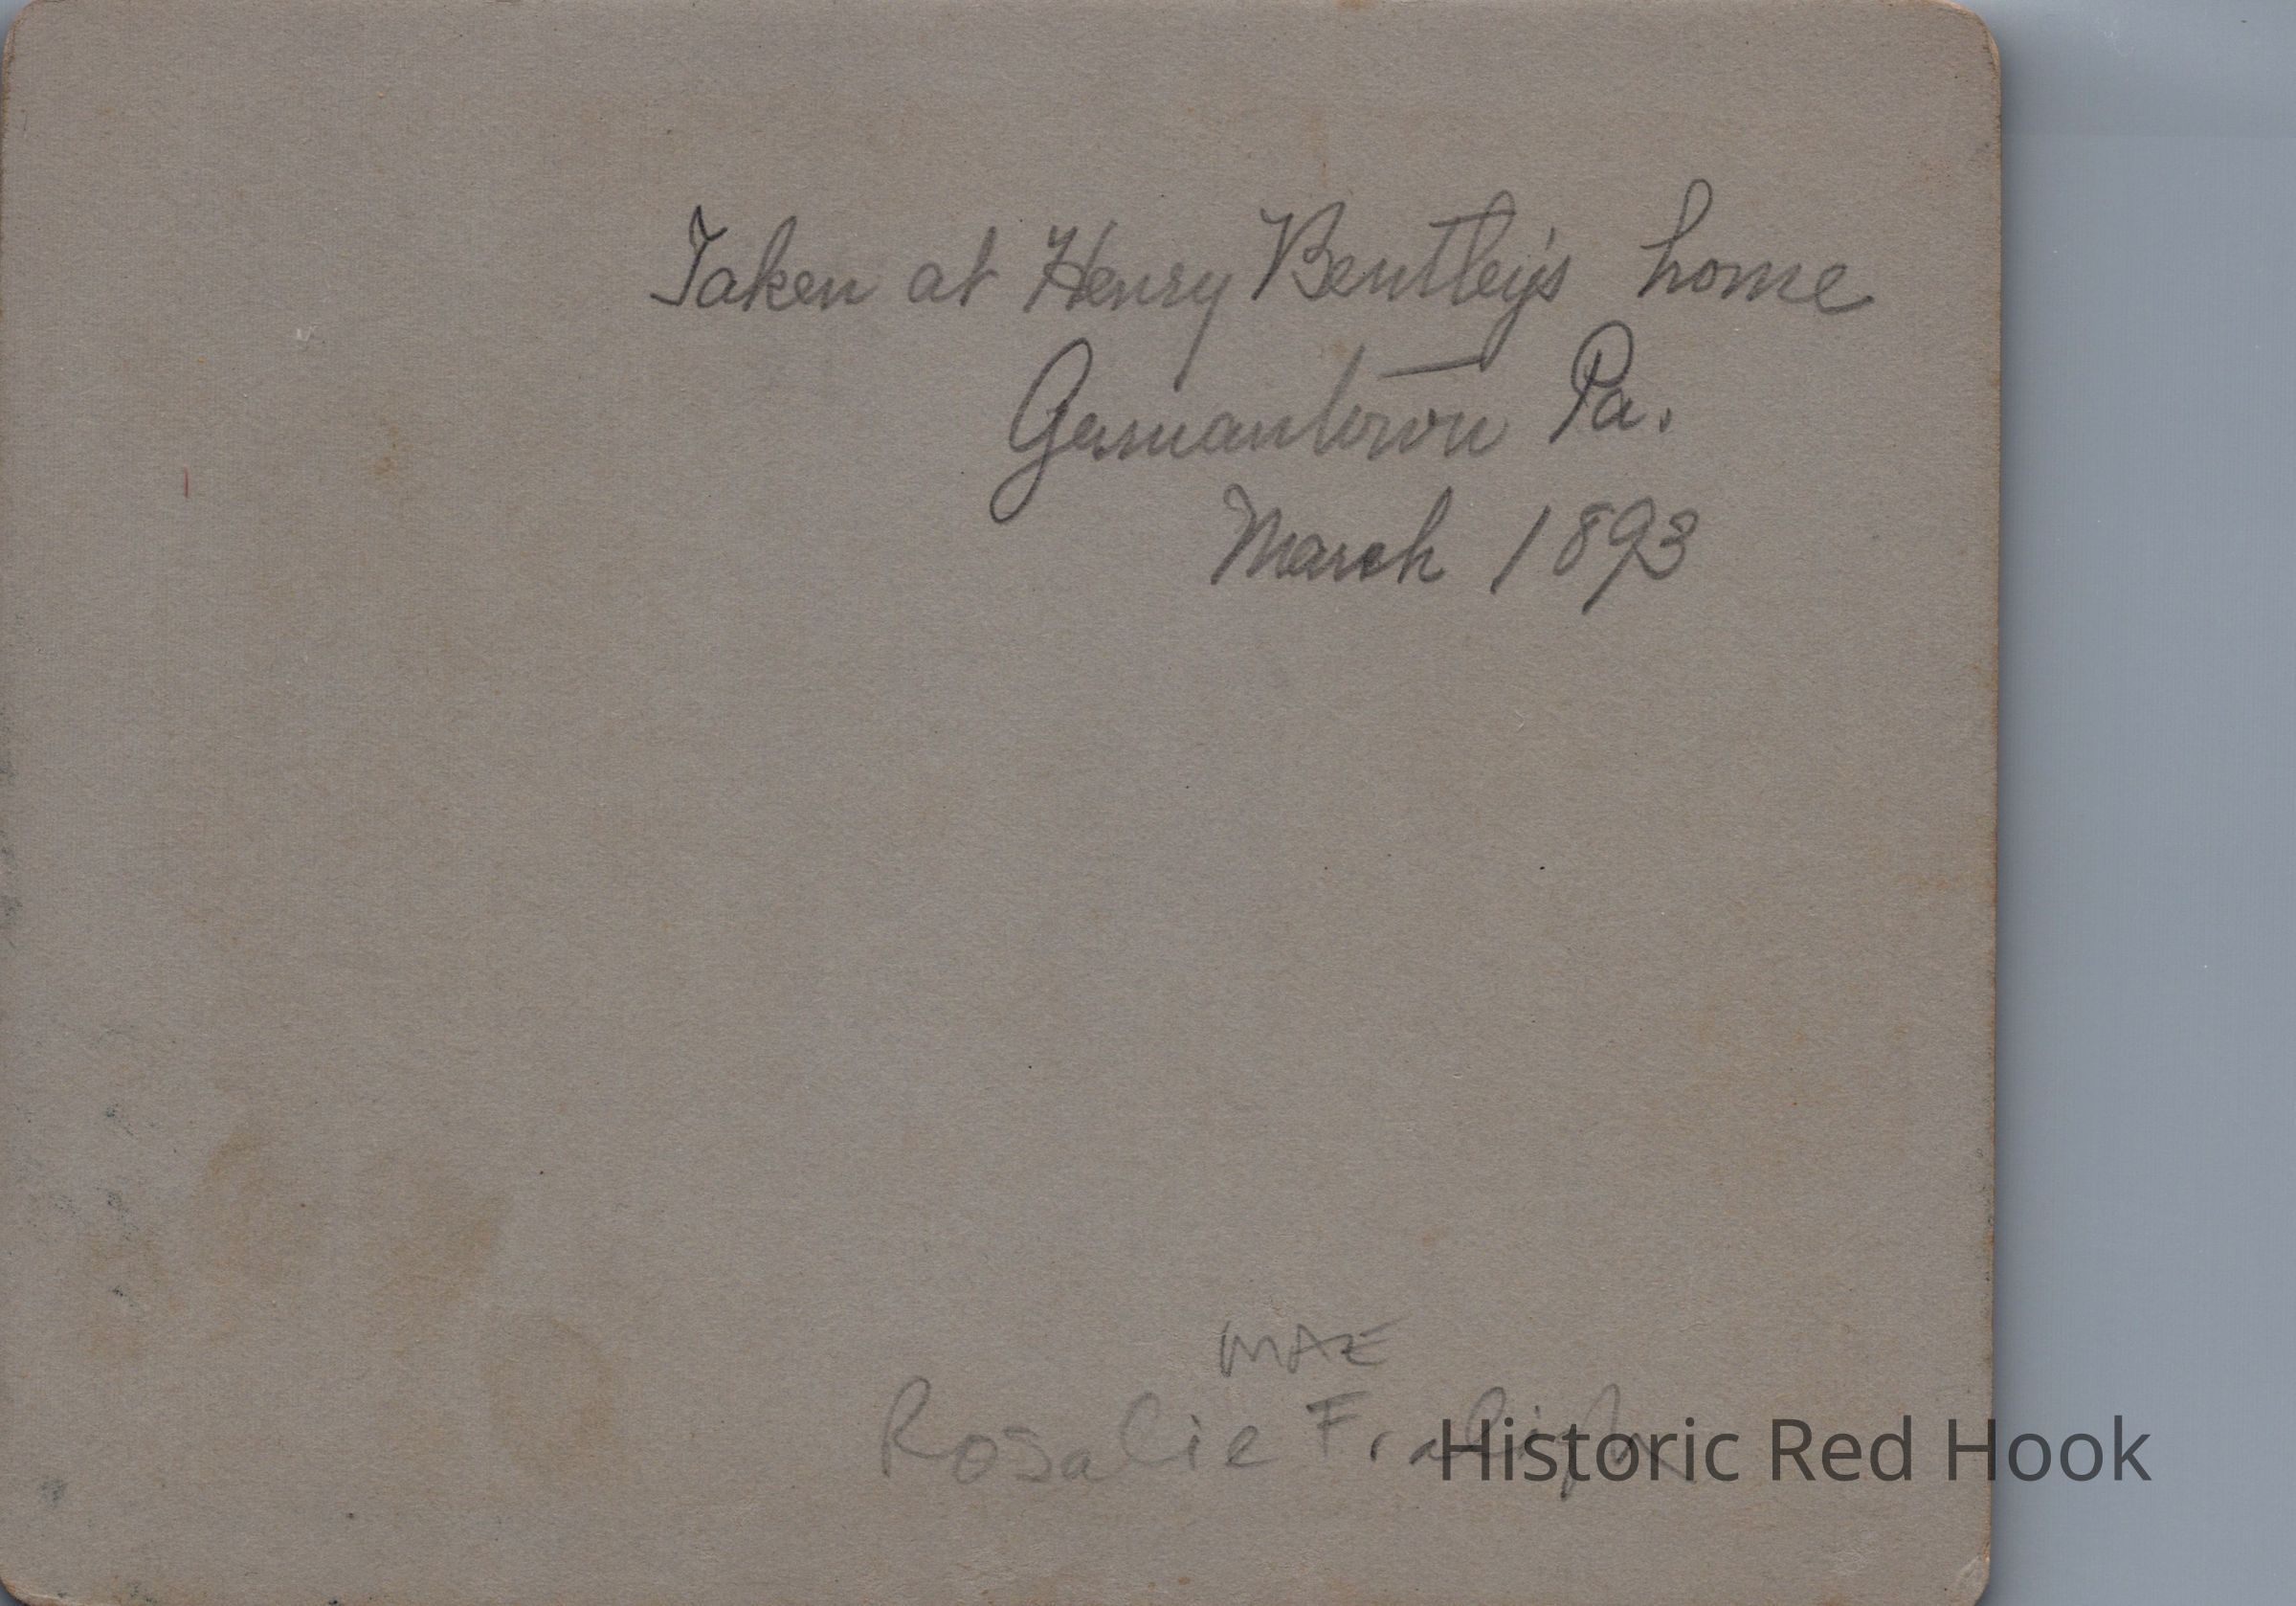 Taken at Henry Bentley's home
Germantown Pa.
March 1893
MAE
Rosalie Fraleigh
Historic Red Hook